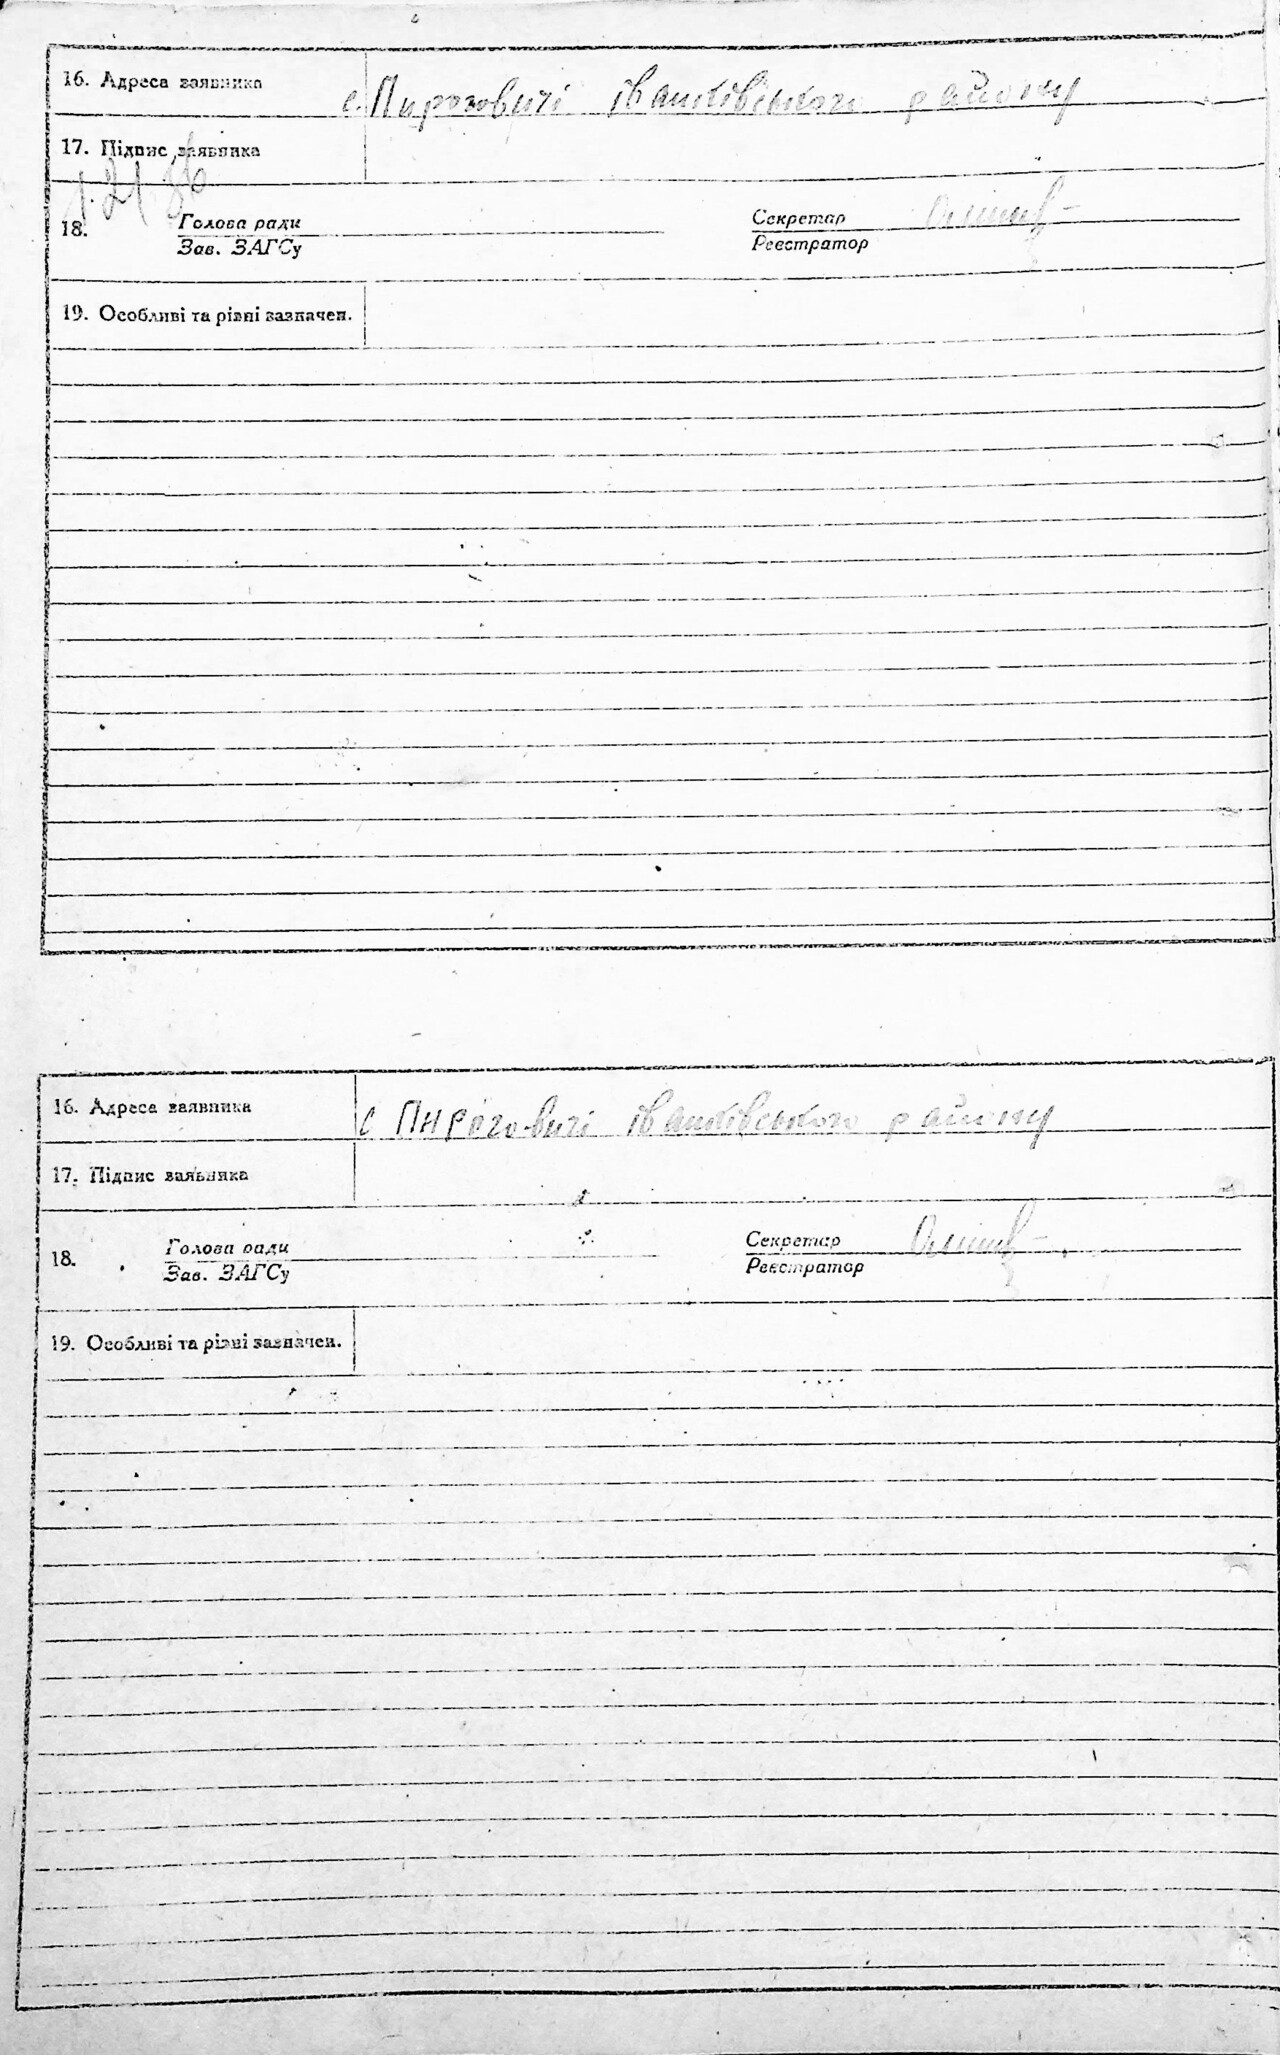 16. Адреса заявника с. Пироговичі іванківського району
17. Підпис заявника
18. Голова ради Секретар
Зав. ЗАГСу Реєстратор
19. Особливі та різні зазначен.
16. Адреса заявника с Пироговичі іванківського району
17. Підпис заявника
18. Голова ради Секретар
Зав. ЗАГСу Реєстратор
19. Особливі та різні зазначен.